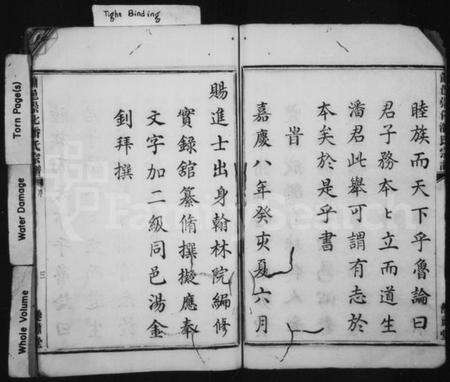 Tight Binding
Torn Page(s)
Water Damage
Whole Volume
睦族而天下乎魯論曰
君子務本々立而道生
潘君此舉可謂有志於
本矣於是乎書
旹
嘉慶八年癸亥夏六月
賜進士出身翰林院編修
實錄舘纂脩撰擬應奉
文字加二級同邑湯金
釗拜撰
三